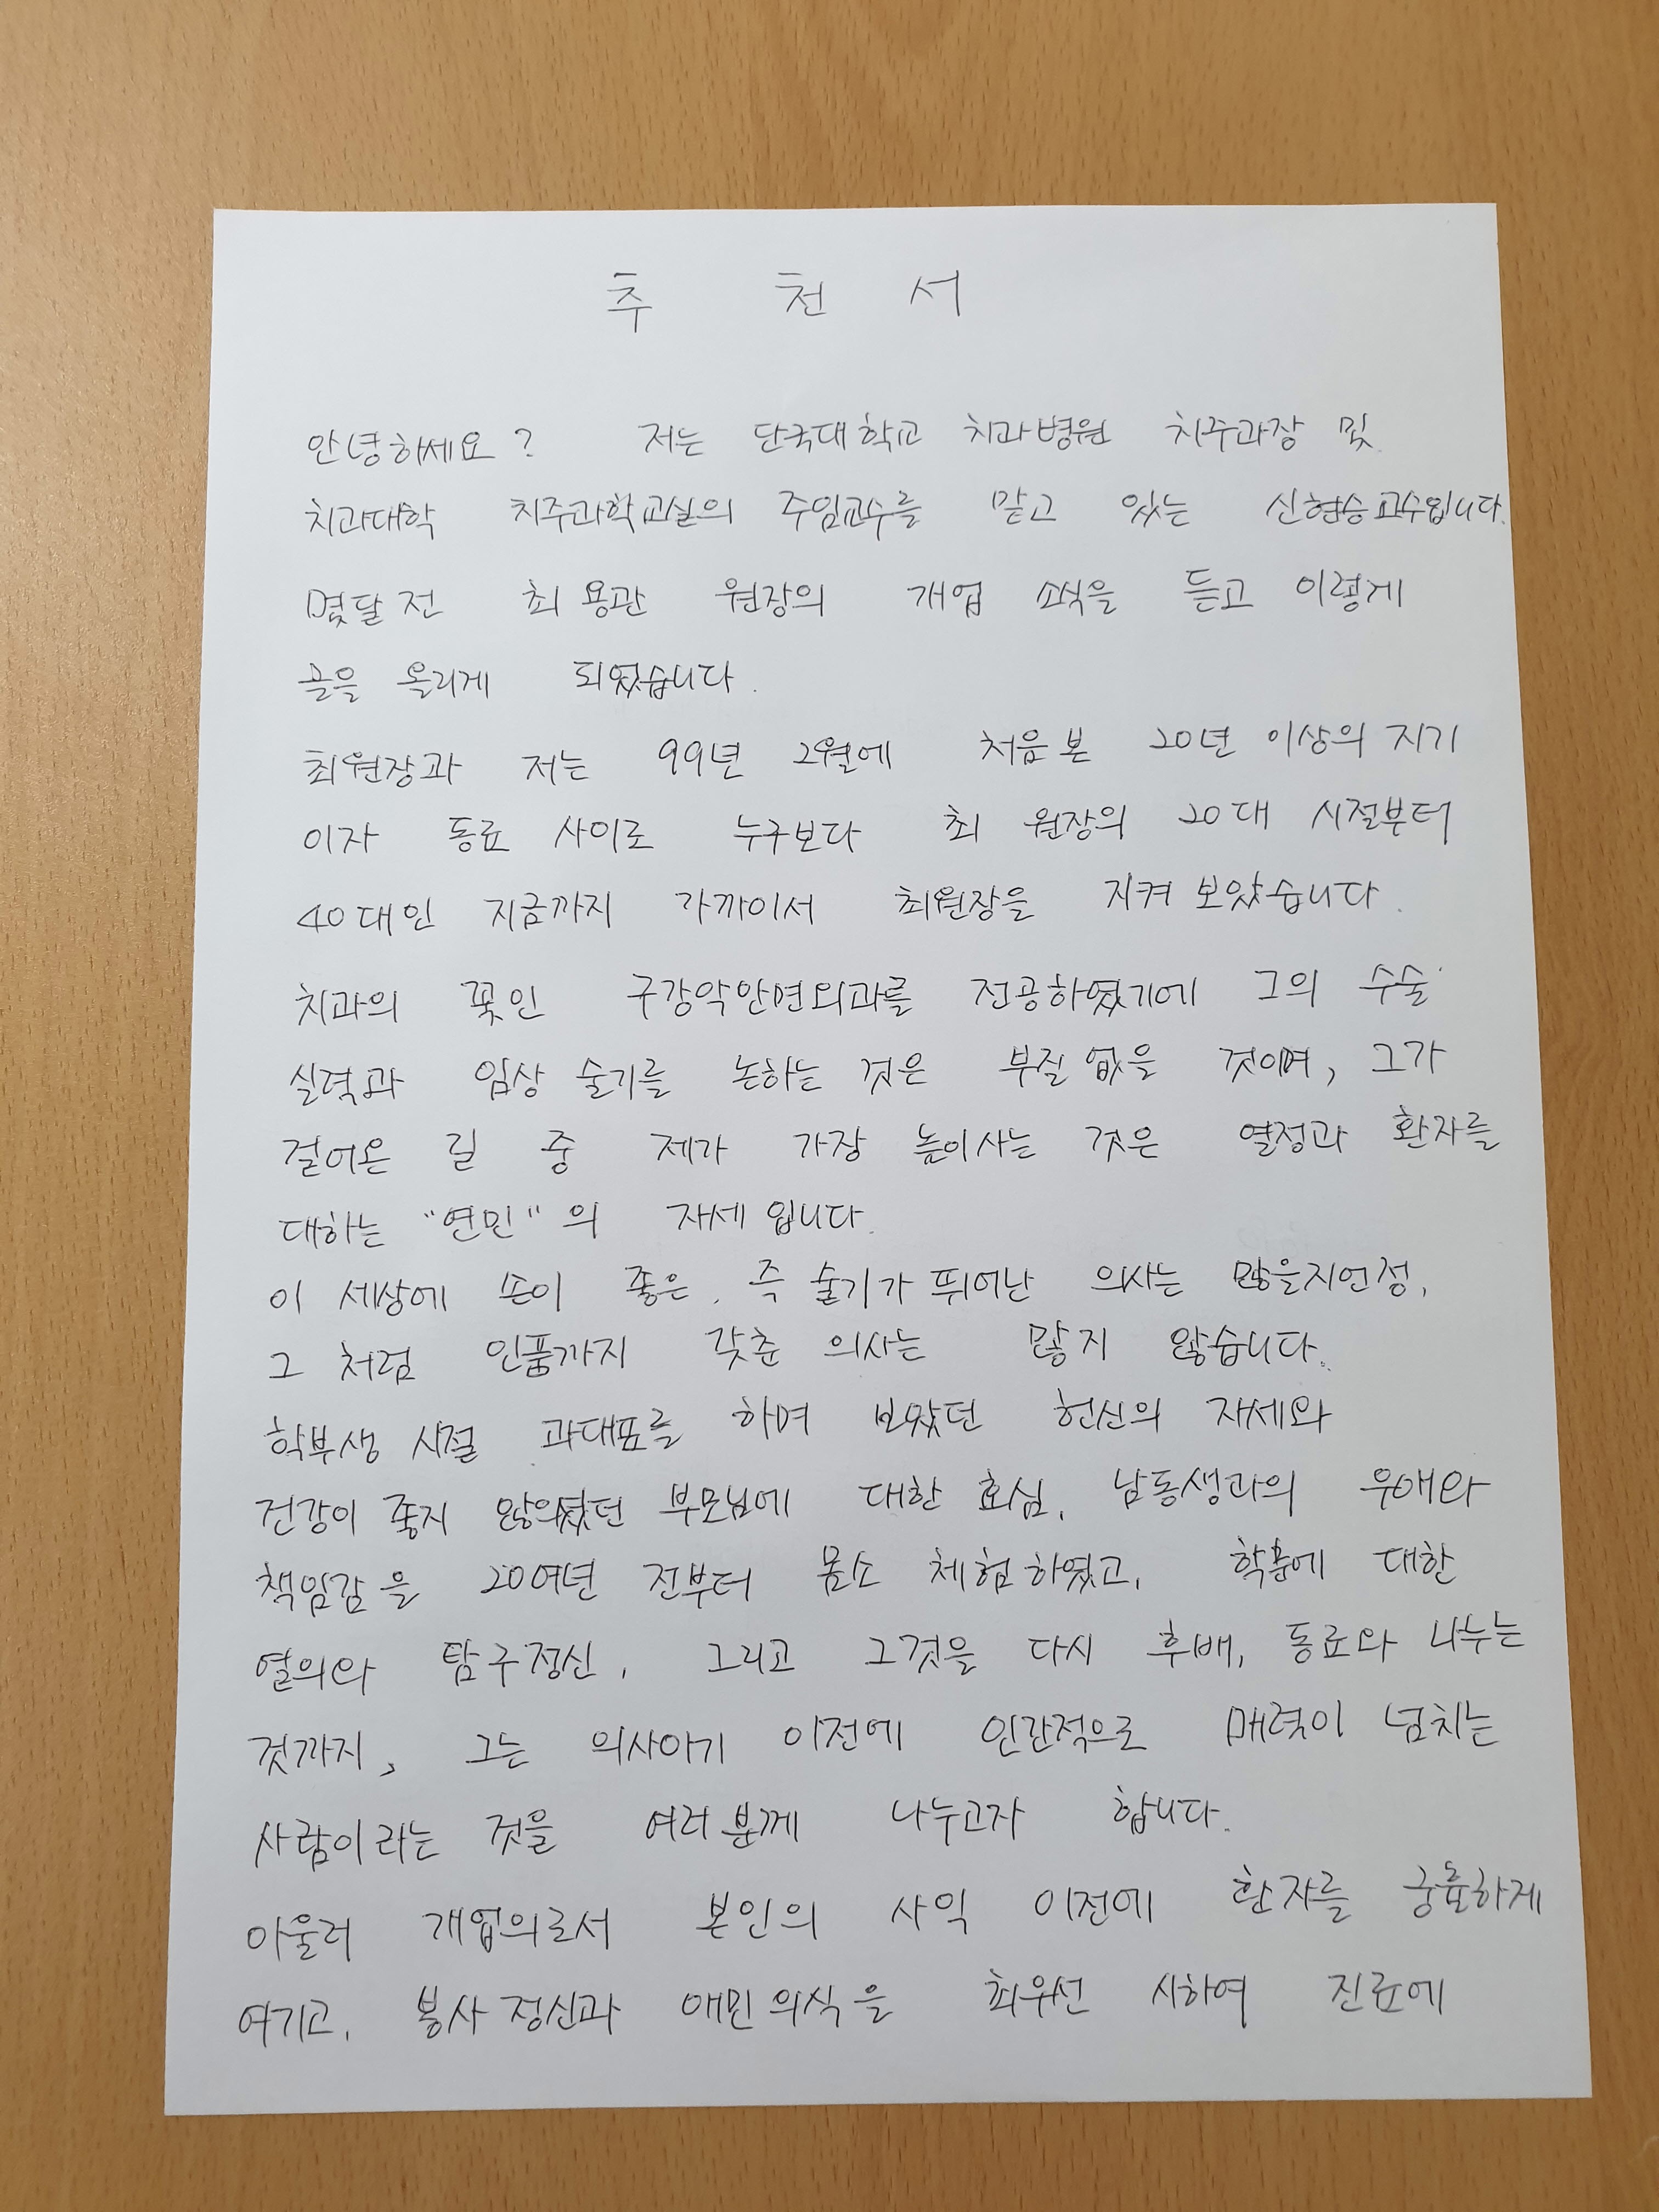 추 천 서
안녕하세요? 저는 단국대학교 치과병원 치주과장 및
치과대학 치주과학교실의 주임교수를 맡고 있는 신현승교수입니다.
몇달 전 최용관 원장의 개업 소식을 듣고 이렇게
글을 올리게 되었습니다.
최원장과 저는 99년 2월에 처음 본 20년 이상의 지기
이자 동료 사이로 누구보다 최 원장의 20대 시절부터
40대인 지금까지 가까이서 최원장을 지켜 보았습니다.
치과의 꽃인 구강악안면외과를 전공하였기에 그의 수술
실력과 임상 술기를 논하는 것은 부질 없을 것이며, 그가
걸어온 길 중 제가 가장 높이사는 것은 열정과 환자를
대하는 "연민"의 자세입니다.
이 세상에 손이 좋은, 즉 술기가 뛰어난 의사는 많을지언정,
그 처럼 인품까지 갖춘 의사는 많지 않습니다.
학부생 시절 과대표를 하며 보았던 헌신의 자세와
건강이 좋지 않으셨던 부모님에 대한 효심, 남동생과의 우애와
책임감을 20여년 전부터 몸소 체험하였고, 학문에 대한
열의와 탐구정신, 그리고 그것을 다시 후배, 동료와 나누는
것까지, 그는 의사이기 이전에 인간적으로 매력이 넘치는
사람이라는 것을 여러분께 나누고자 합니다.
아울러 개업의로서 본인의 사익 이전에 환자를 긍휼하게
여기고, 봉사 정신과 애민 의식을 최우선 시하여 진료에